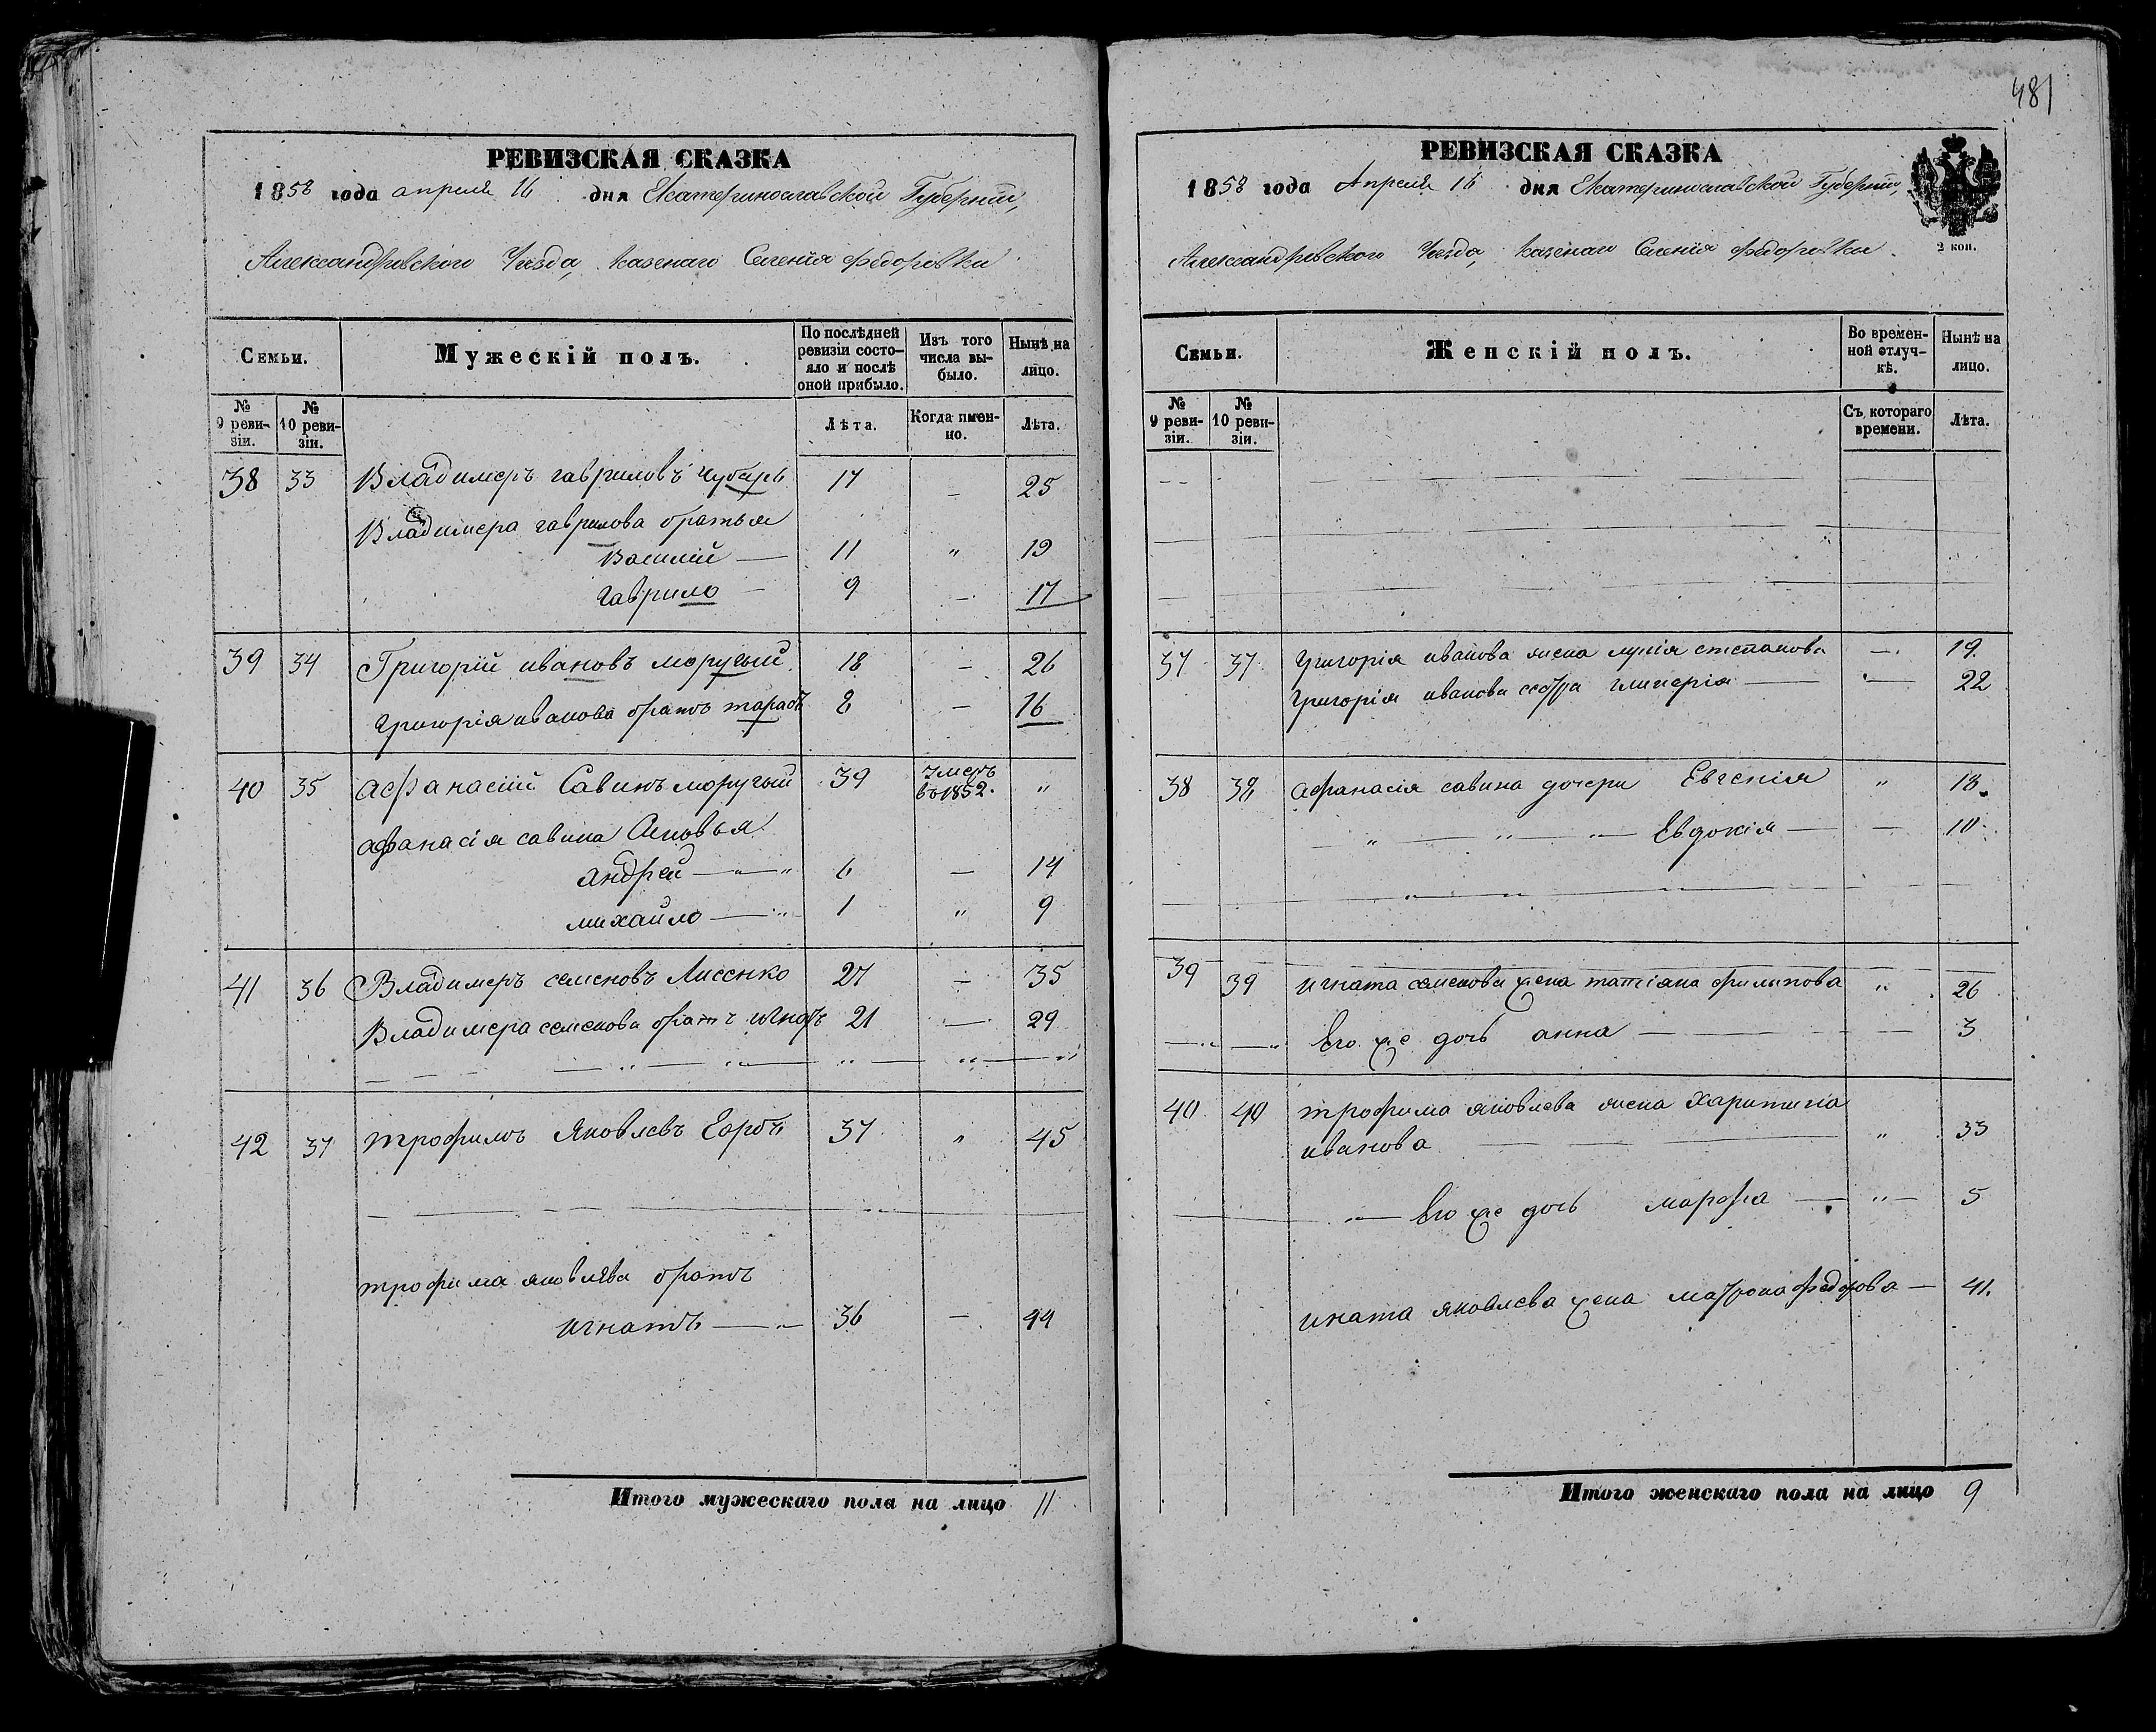 481
РЕВИЗСКАЯ СКАЗКА
1858 года апреля 16 дня Екатеринославской Губерніи,
Александровского Уезда, казенаго Селенія Федоровки
Семьи.
Мужескій полъ.
По послѣдней ревизіи состо-
яло и послѣ оной прибыло.
Изъ того числа вы-
было.
Нынѣ на лицо.
№ 9 реви-
зіи.
№ 10 реви-
зіи.
Лѣта.
Когда имен-
но.
Лѣта.
38 33 Владимеръ гавриловъ Чубарь 17 — 25
Владимера гаврилова братья
Василий — 11 " 19
гаврило — 9 — 17
39 34 Григорій ивановъ моручый 18 — 26
григорія иванова братъ тарасъ 8 — 16
40 35 афанасій Савинъ моручый 39 умеръ въ 1852. "
афанасія савина Сыновья
андрей — " — " 6 — 14
михайло — " 1 " 9
41 36 Владимеръ семеновъ Лисенко 27 — 35
Владимера семенова братъ игнатъ 21 — 29
42 37 трофимъ Яковлевъ 37 " 45
трофима яковлева братъ
игнатъ — " 36 — 44
Итого мужескаго пола на лицо 11
РЕВИЗСКАЯ СКАЗКА
1858 года Апреля 16 дня Екатеринославской Губерніи,
Александровского Уезда, казенаго Селенія Федоровки.
2 коп.
Семьи.
Женскій полъ.
Во времен-
ной отлуч-
кѣ.
Нынѣ на лицо.
№ 9 реви-
зіи.
№ 10 реви-
зіи.
Съ котораго времени.
Лѣта.
37 37 григорія иванова жена лукія степанова — 19
григорія иванова сестра гликерія — 22
38 38 афанасія савина дочери Евгенія " 13
" — " — " — Евдокія — 10
39 39 игната семенова жена татіана филипова " 26
его же дочь анна — 3
40 40 трофима яковлева жена Харитина
иванова " 33
" — Его же дочь марфа — " — 5
игната яковлева жена матрона федорова — 41.
Итого женскаго пола на лицо 9